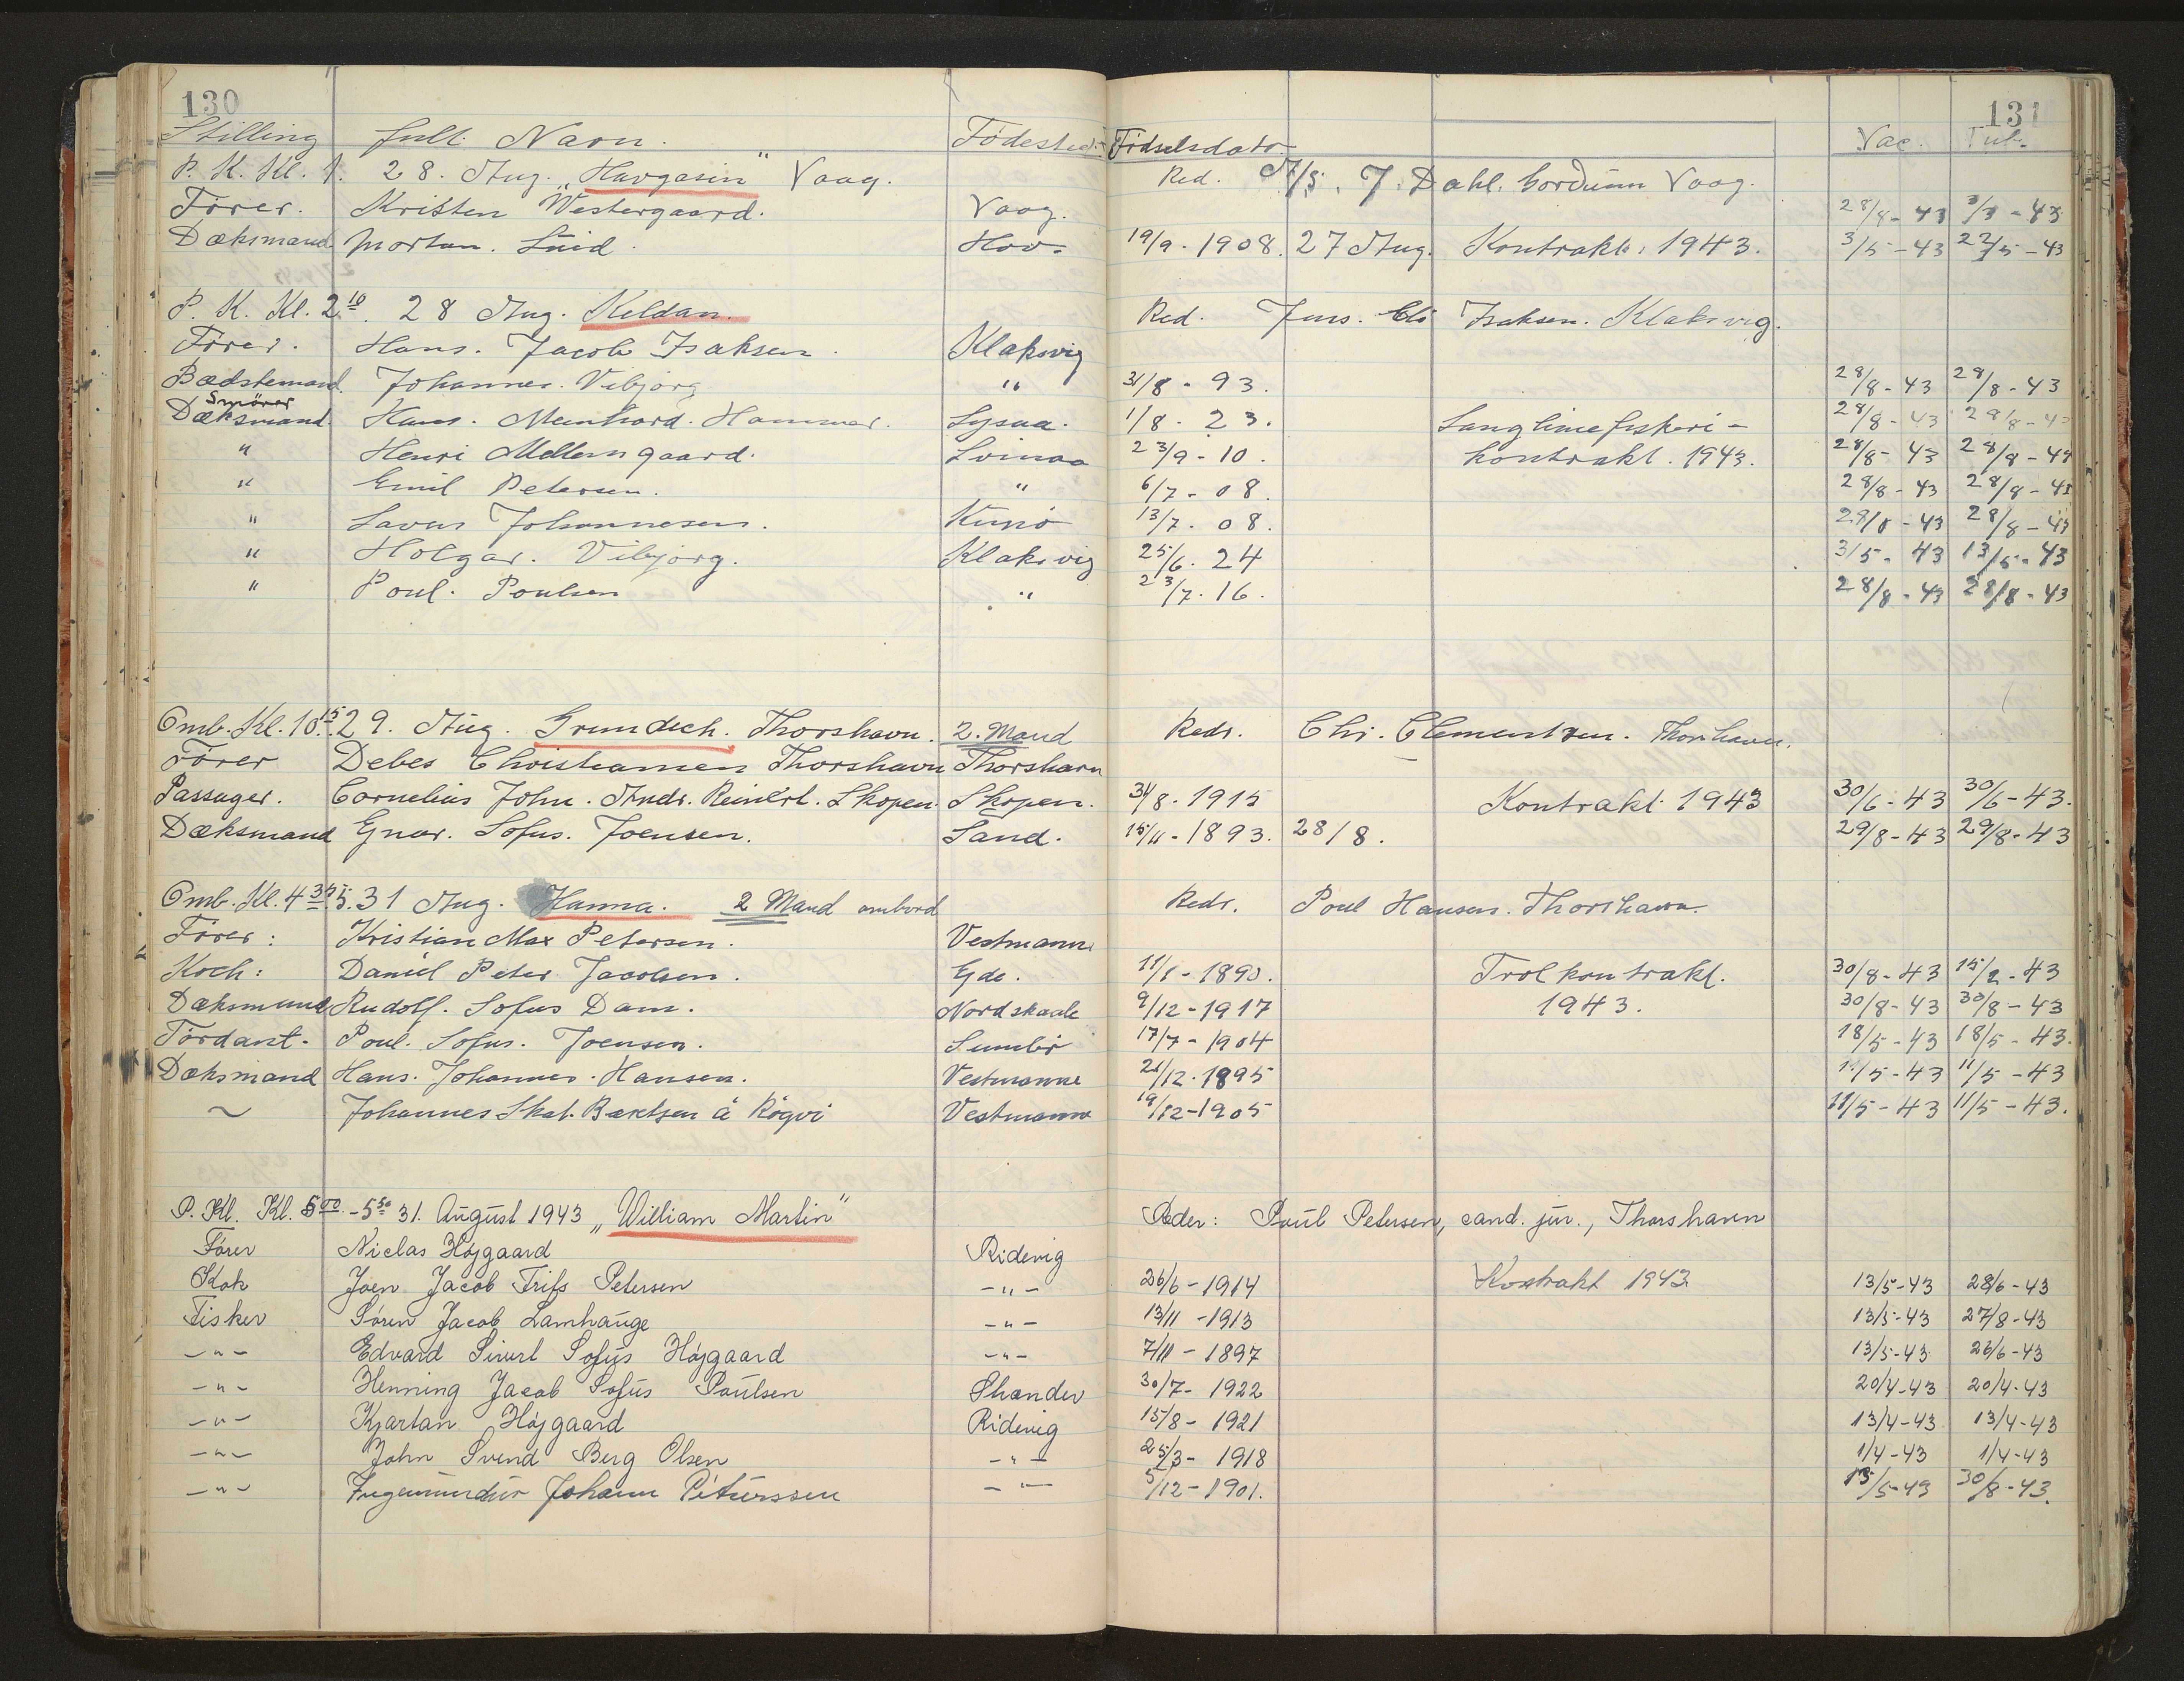 130
131
Stilling full. Navn. Fødested. Fødselsdato. Vac. Tub.
P. K. Kl. 1. 28. Aug. "Havgasin" Vaag. Red. A/S. J. Dahl. Vaag.
Fører. Kristen Westergaard. Vaag. 28/8-43
Dæksmand Morten. Lüid. Hov. 19/9-1908. 27 Aug. Kontrakt. 1943. 3/5-43 22/5-43
P. K. Kl. 2 10. 28 Aug. Keldan. Red. Jens. Isaksen. Klaksvig.
Fører. Hans. Jacob Isaksen. Klaksvig
Bædstemand. Johannes. Vibjørg " 31/8-93. 28/8-43 28/8-43
Smører
Dæksmand. Hans. Meinhard. Hammer. 1/8. 23. Langlinefiskeri- 28/8-43 28/8-43
" Henri Mellemgaard. Svinaa 23/9-10. kontrakt. 1943. 28/8-43 28/8-43
" Emil Petersen. " 6/7-08. 28/8-43 28/8-43
" Johannesen. Kunø 13/7-08. 28/8-43 28/8-43
" Holgar. Vibjørg. Klaksvig 25/6. 24 3/5-43 13/5-43
" Poul. Poulsen " 23/7.16. 28/8-43 28/8-43
Omb. Kl. 10 15. 29. Aug. Thorshavn. 2. Mand Redr. Chr. Clementsen. Thorshavn.
Fører Debes Christiansen Thorshavn Thorshavn
Passager. Cornelius John. Andr. Reinert. Skopen. Skopen. 31/8-1915 Kontrakt 1943 30/6-43 30/6-43.
Dæksmand Ejnar. Sofus. Joensen. Sand. 15/11-1893. 28/8. 29/8-43 29/8-43
Omb. Kl. 4 35. 31 Aug. Hanna. 2 Mand ombord Redr. Poul Hansen. Thorshavn.
Fører: Kristian Max Petersen. Vestmanna
Koch: Daniel Peter Jacobsen. Ejde. 11/1-1890. Trolkontrakt. 30/8-43 15/2-43
Dæksmand Rudolf. Sofus Dam. Nordskaale 9/12-1917 1943. 30/8-43 30/8-43
Poul. Sofus. Joensen. Sumbø 17/7-1904 18/5-43 18/5-43.
Dæksmand Hans. Johannes. Hansen. Vestmanne 21/12.1895 11/5-43 11/5-43
~ Johannes Skat. Bærtsen á Rógvi Vestmanne 19/12-1905 11/5-43 11/5-43.
P. Kl. Kl. 5 00 - 5 50 31. August 1943 "William Martin" Reder: Poul Petersen, cand. jur., Thorshavn
Fører Niclas Højgaard Ridevig
Kok Joen Jacob Friis Petersen -"- 26/6-1914 Kontrakt 1943 13/5-43 28/6-43
Fisker Søren Jacob Lamhauge -"- 13/11-1913 13/5-43 27/8-43
-"- Edvard Sivert Sofus Højgaard -"- 7/11-1897 13/5-43 26/6-43
-"- Henning Jacob Sofus Poulsen 30/7-1922 20/4-43 20/4-43
-"- Kjartan Højgaard Ridevig 15/8-1921 13/4-43 13/4-43
-"- John Svend Berg Olsen -"- 25/3-1918 1/4-43 1/4-43
-"- Johann Péturssen -"- 5/12-1901. 13/5-43 30/8-43.